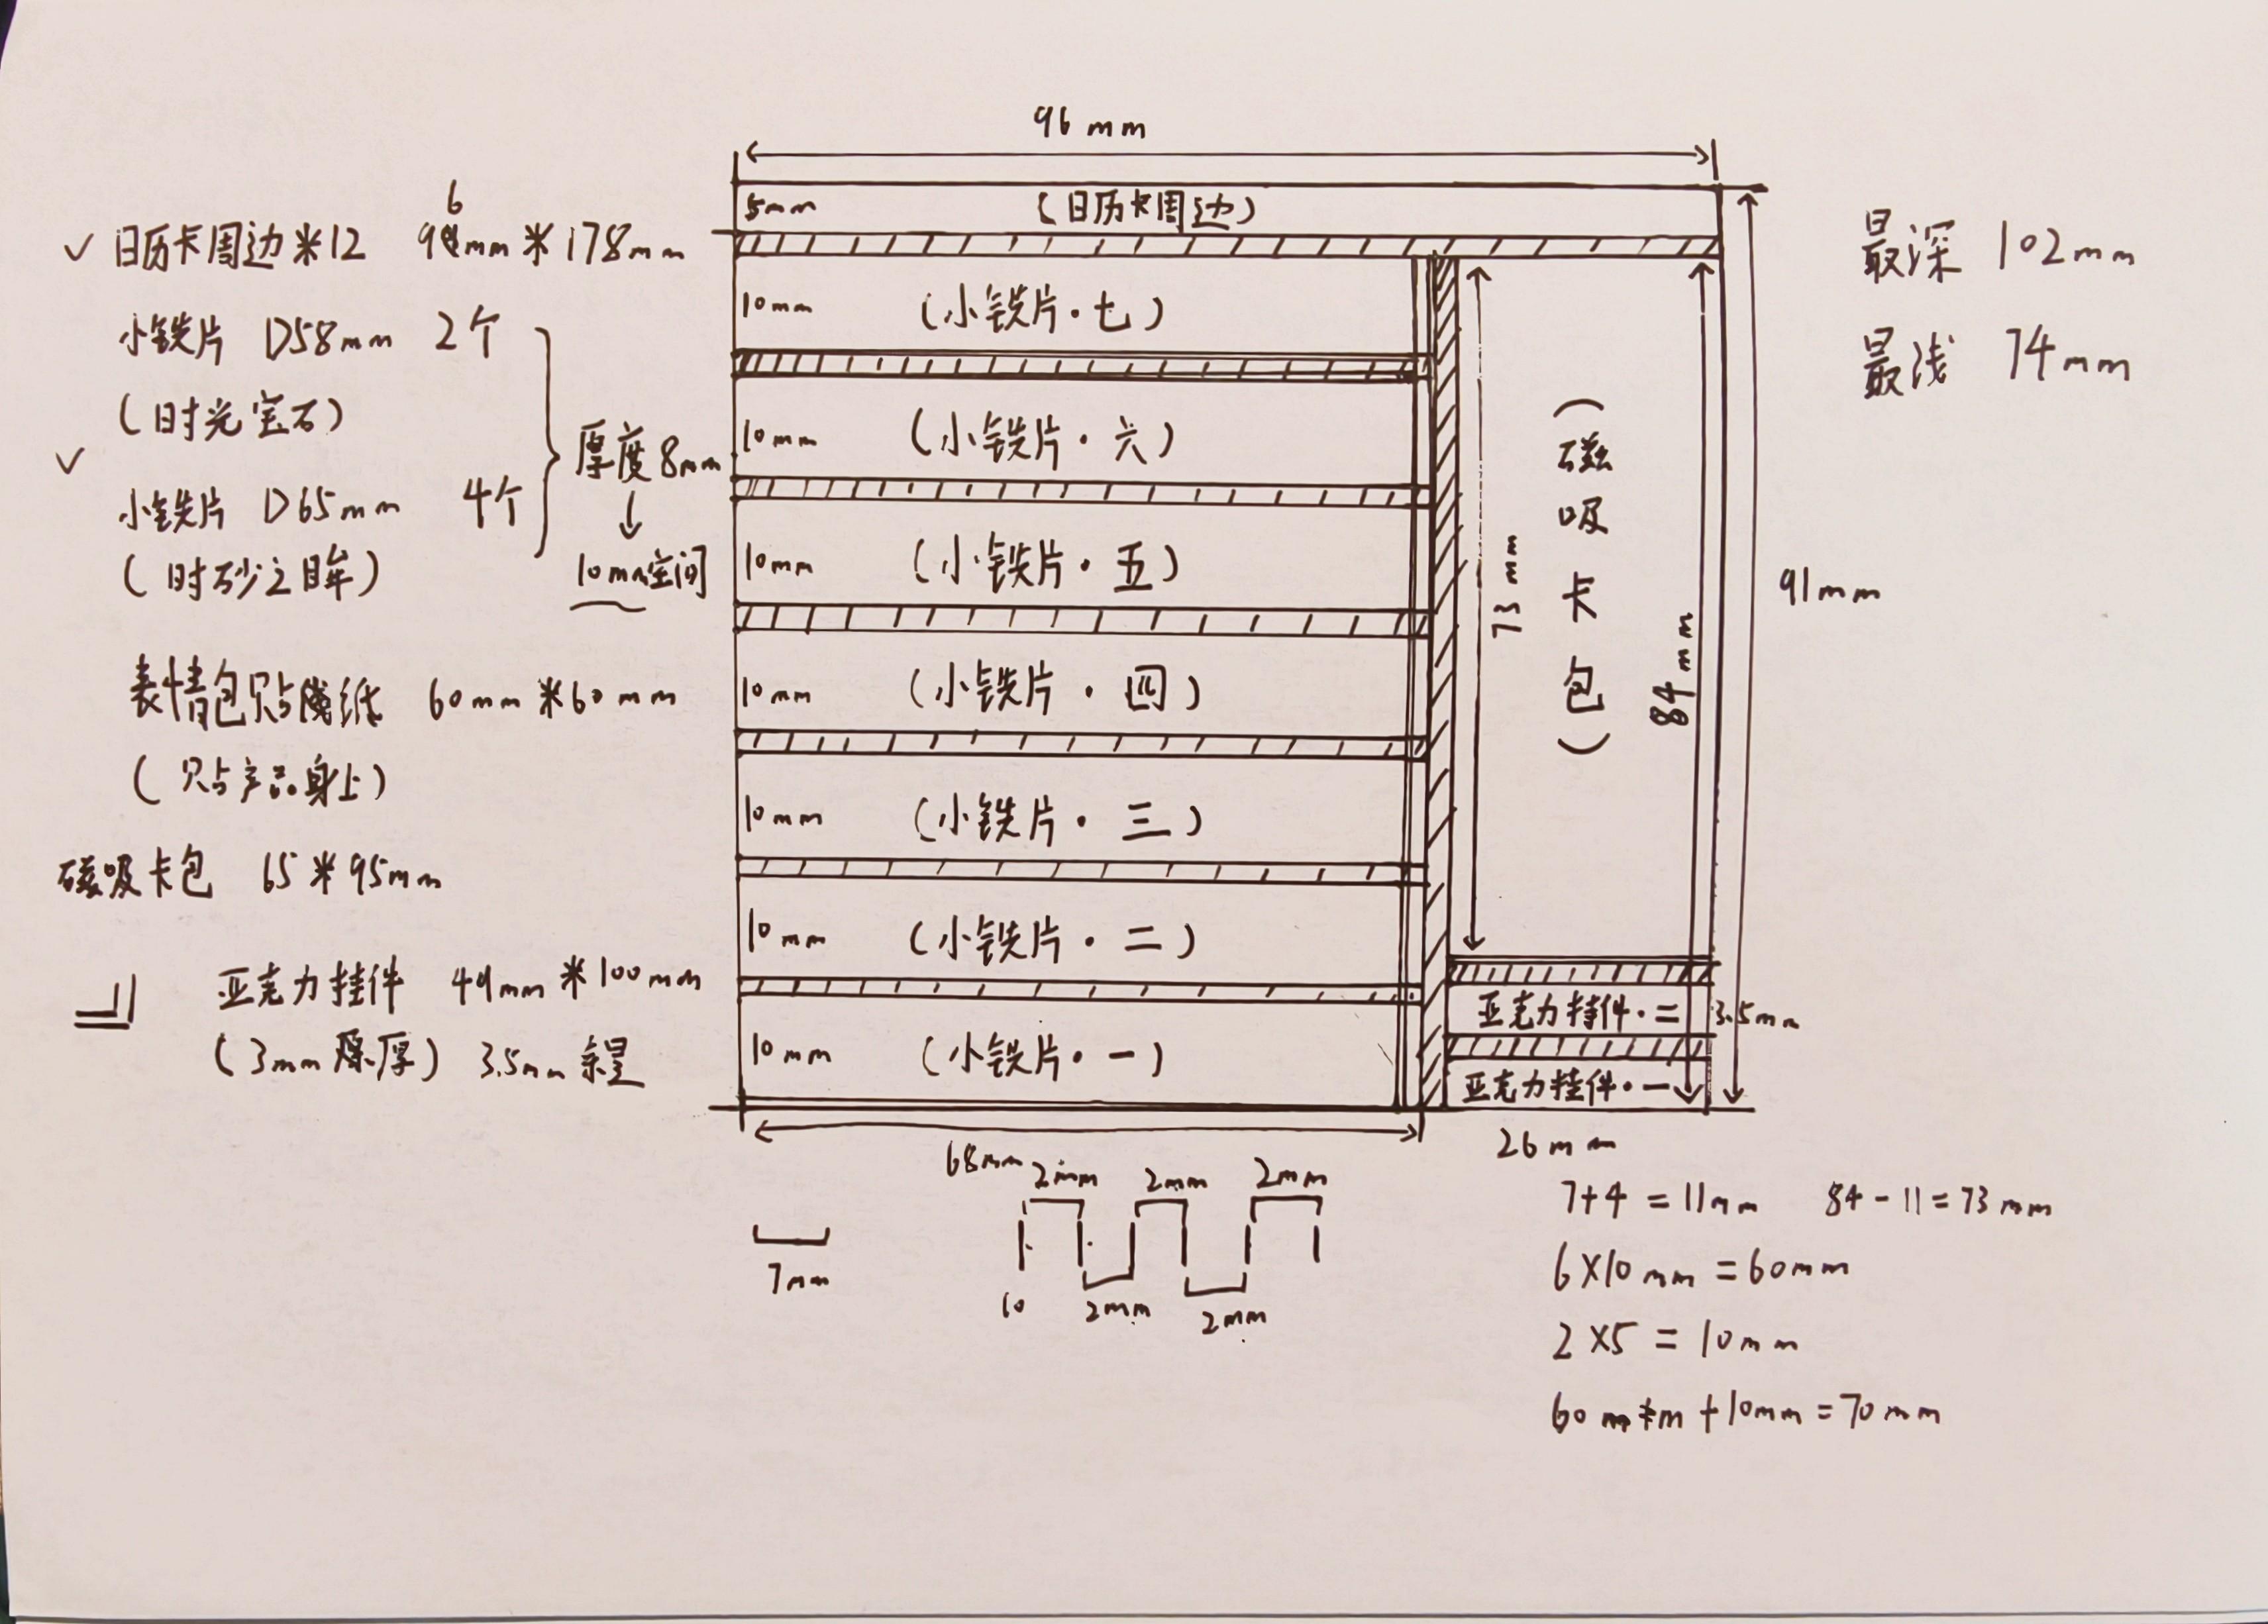 96 mm
6
日历卡周边*12 98mm*178mm
小铁片 D58mm 2个
(时光宝石)
小铁片 D65mm 4个
(时砂之眸)
厚度8mm
↓
10mm空间
表情包贴纸 60mm*60mm
(贴产品身上)
磁吸卡包 65*95mm
亚克力挂件 49mm*100mm
(3mm厚) 3.5mm余量
5mm (日历卡周边)
10mm (小铁片·七)
10mm (小铁片·六)
10mm (小铁片·五)
10mm (小铁片·四)
10mm (小铁片·三)
10mm (小铁片·二)
10mm (小铁片·一)
73mm
(磁吸卡包)
84mm
亚克力挂件·二 3.5mm
亚克力挂件·一
91mm
最深 102mm
最浅 74mm
68mm
26mm
2mm 2mm 2mm
7mm
10 2mm 2mm
7+4=11mm 84-11=73mm
6×10mm=60mm
2×5=10mm
60mm+10mm=70mm